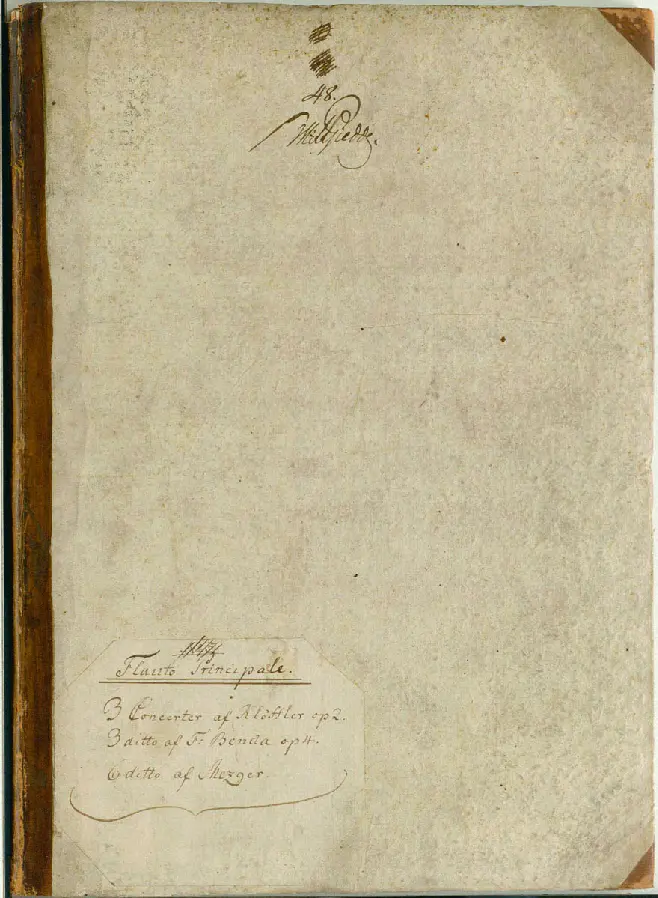 48.
Flauto Principale.
3 Concerter af Klöffler op 2.
3 ditto af Fr Benda op 4.
6 ditto af Mezger.